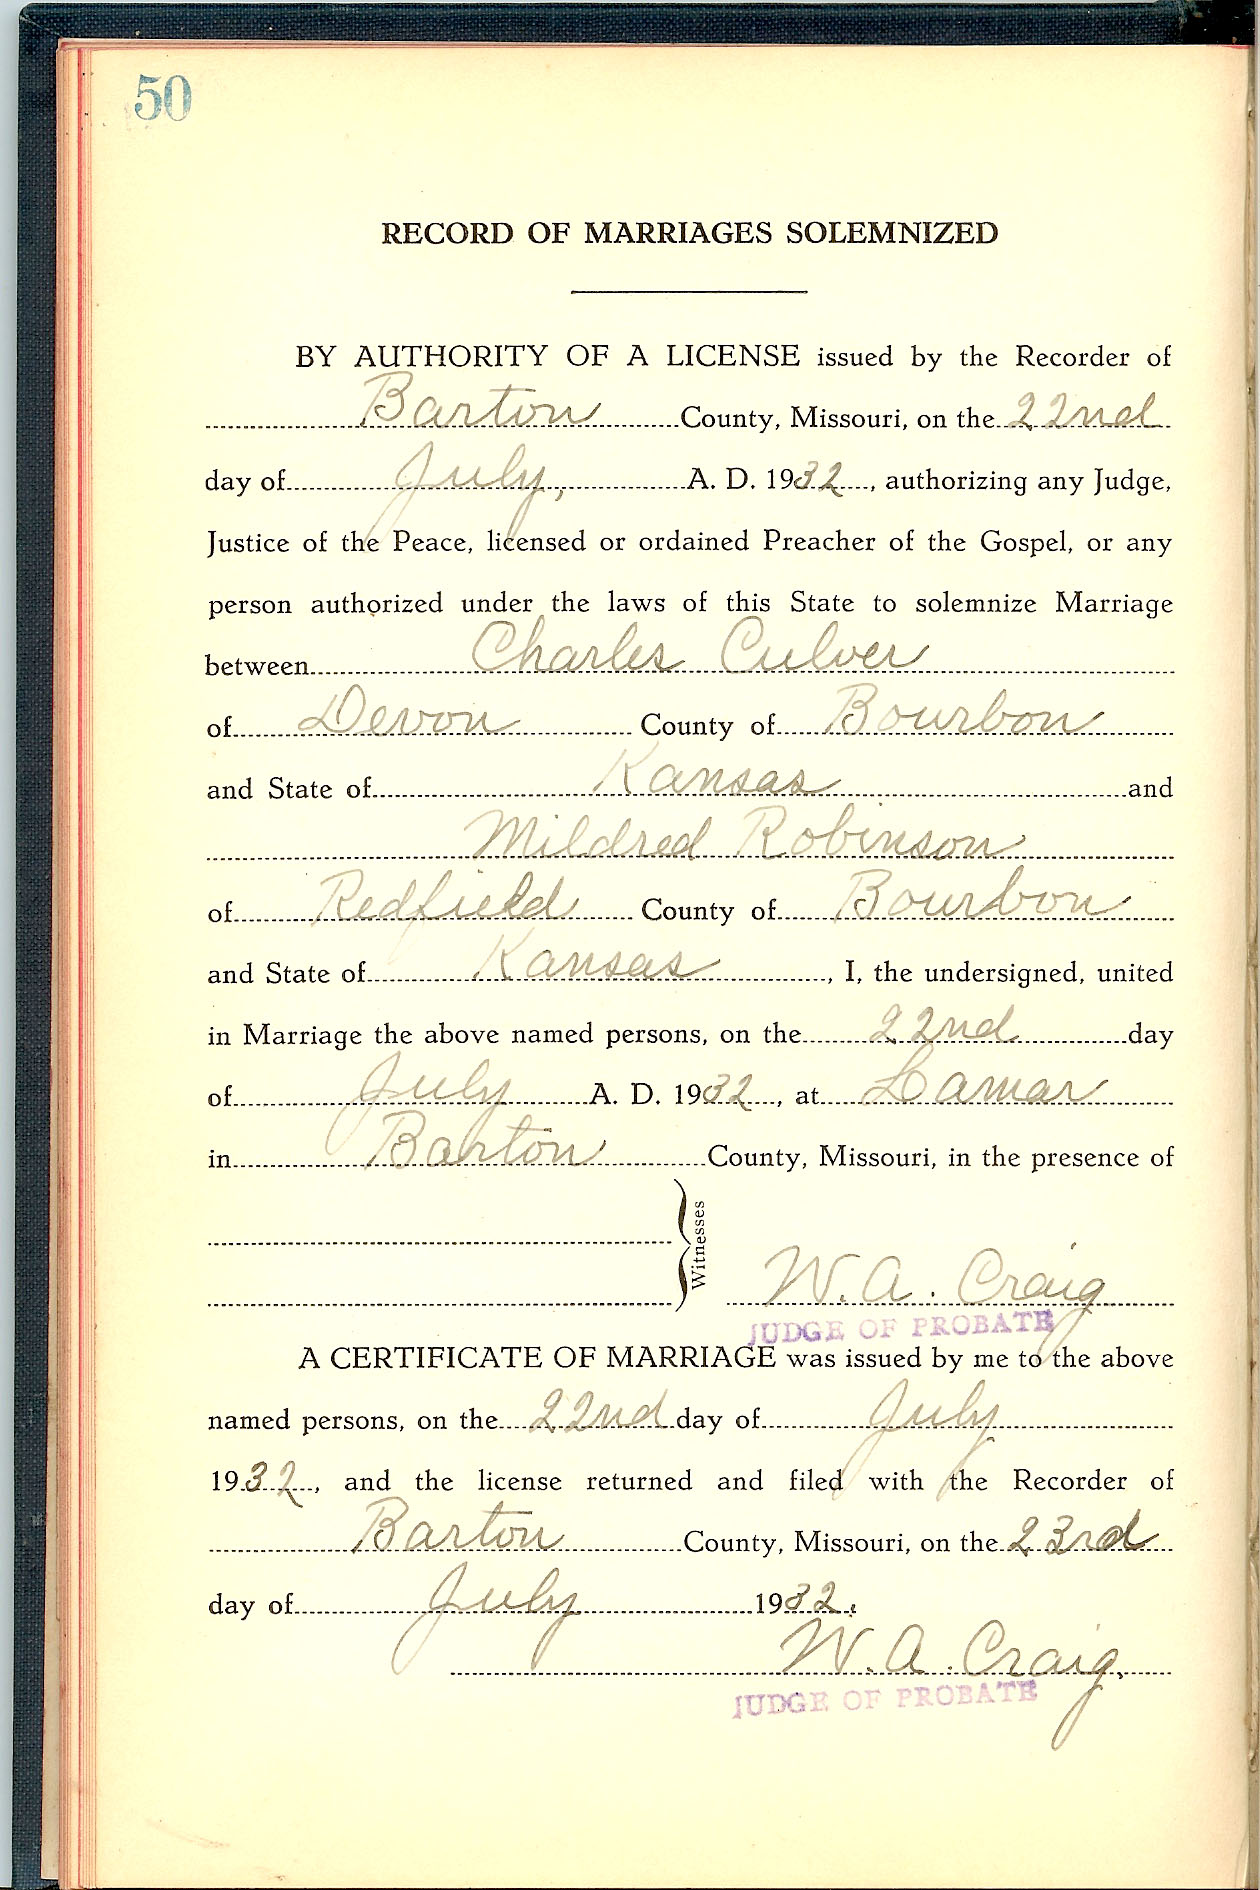 50
RECORD OF MARRIAGES SOLEMNIZED
BY AUTHORITY OF A LICENSE issued by the Recorder of
Barton County, Missouri, on the 22nd
day of July, A. D. 1932, authorizing any Judge,
Justice of the Peace, licensed or ordained Preacher of the Gospel, or any
person authorized under the laws of this State to solemnize Marriage
between Charles Culver
of Devon County of Bourbon
and State of Kansas and
Mildred Robinson
of Redfield County of Bourbon
and State of Kansas, I, the undersigned, united
in Marriage the above named persons, on the 22nd day
of July A. D. 1932, at Lamar
in Barton County, Missouri, in the presence of
Witnesses
W. A. Craig
JUDGE OF PROBATE
A CERTIFICATE OF MARRIAGE was issued by me to the above
named persons, on the 22nd day of July
1932, and the license returned and filed with the Recorder of
Barton County, Missouri, on the 23rd
day of July 1932.
W. A. Craig.
JUDGE OF PROBATE